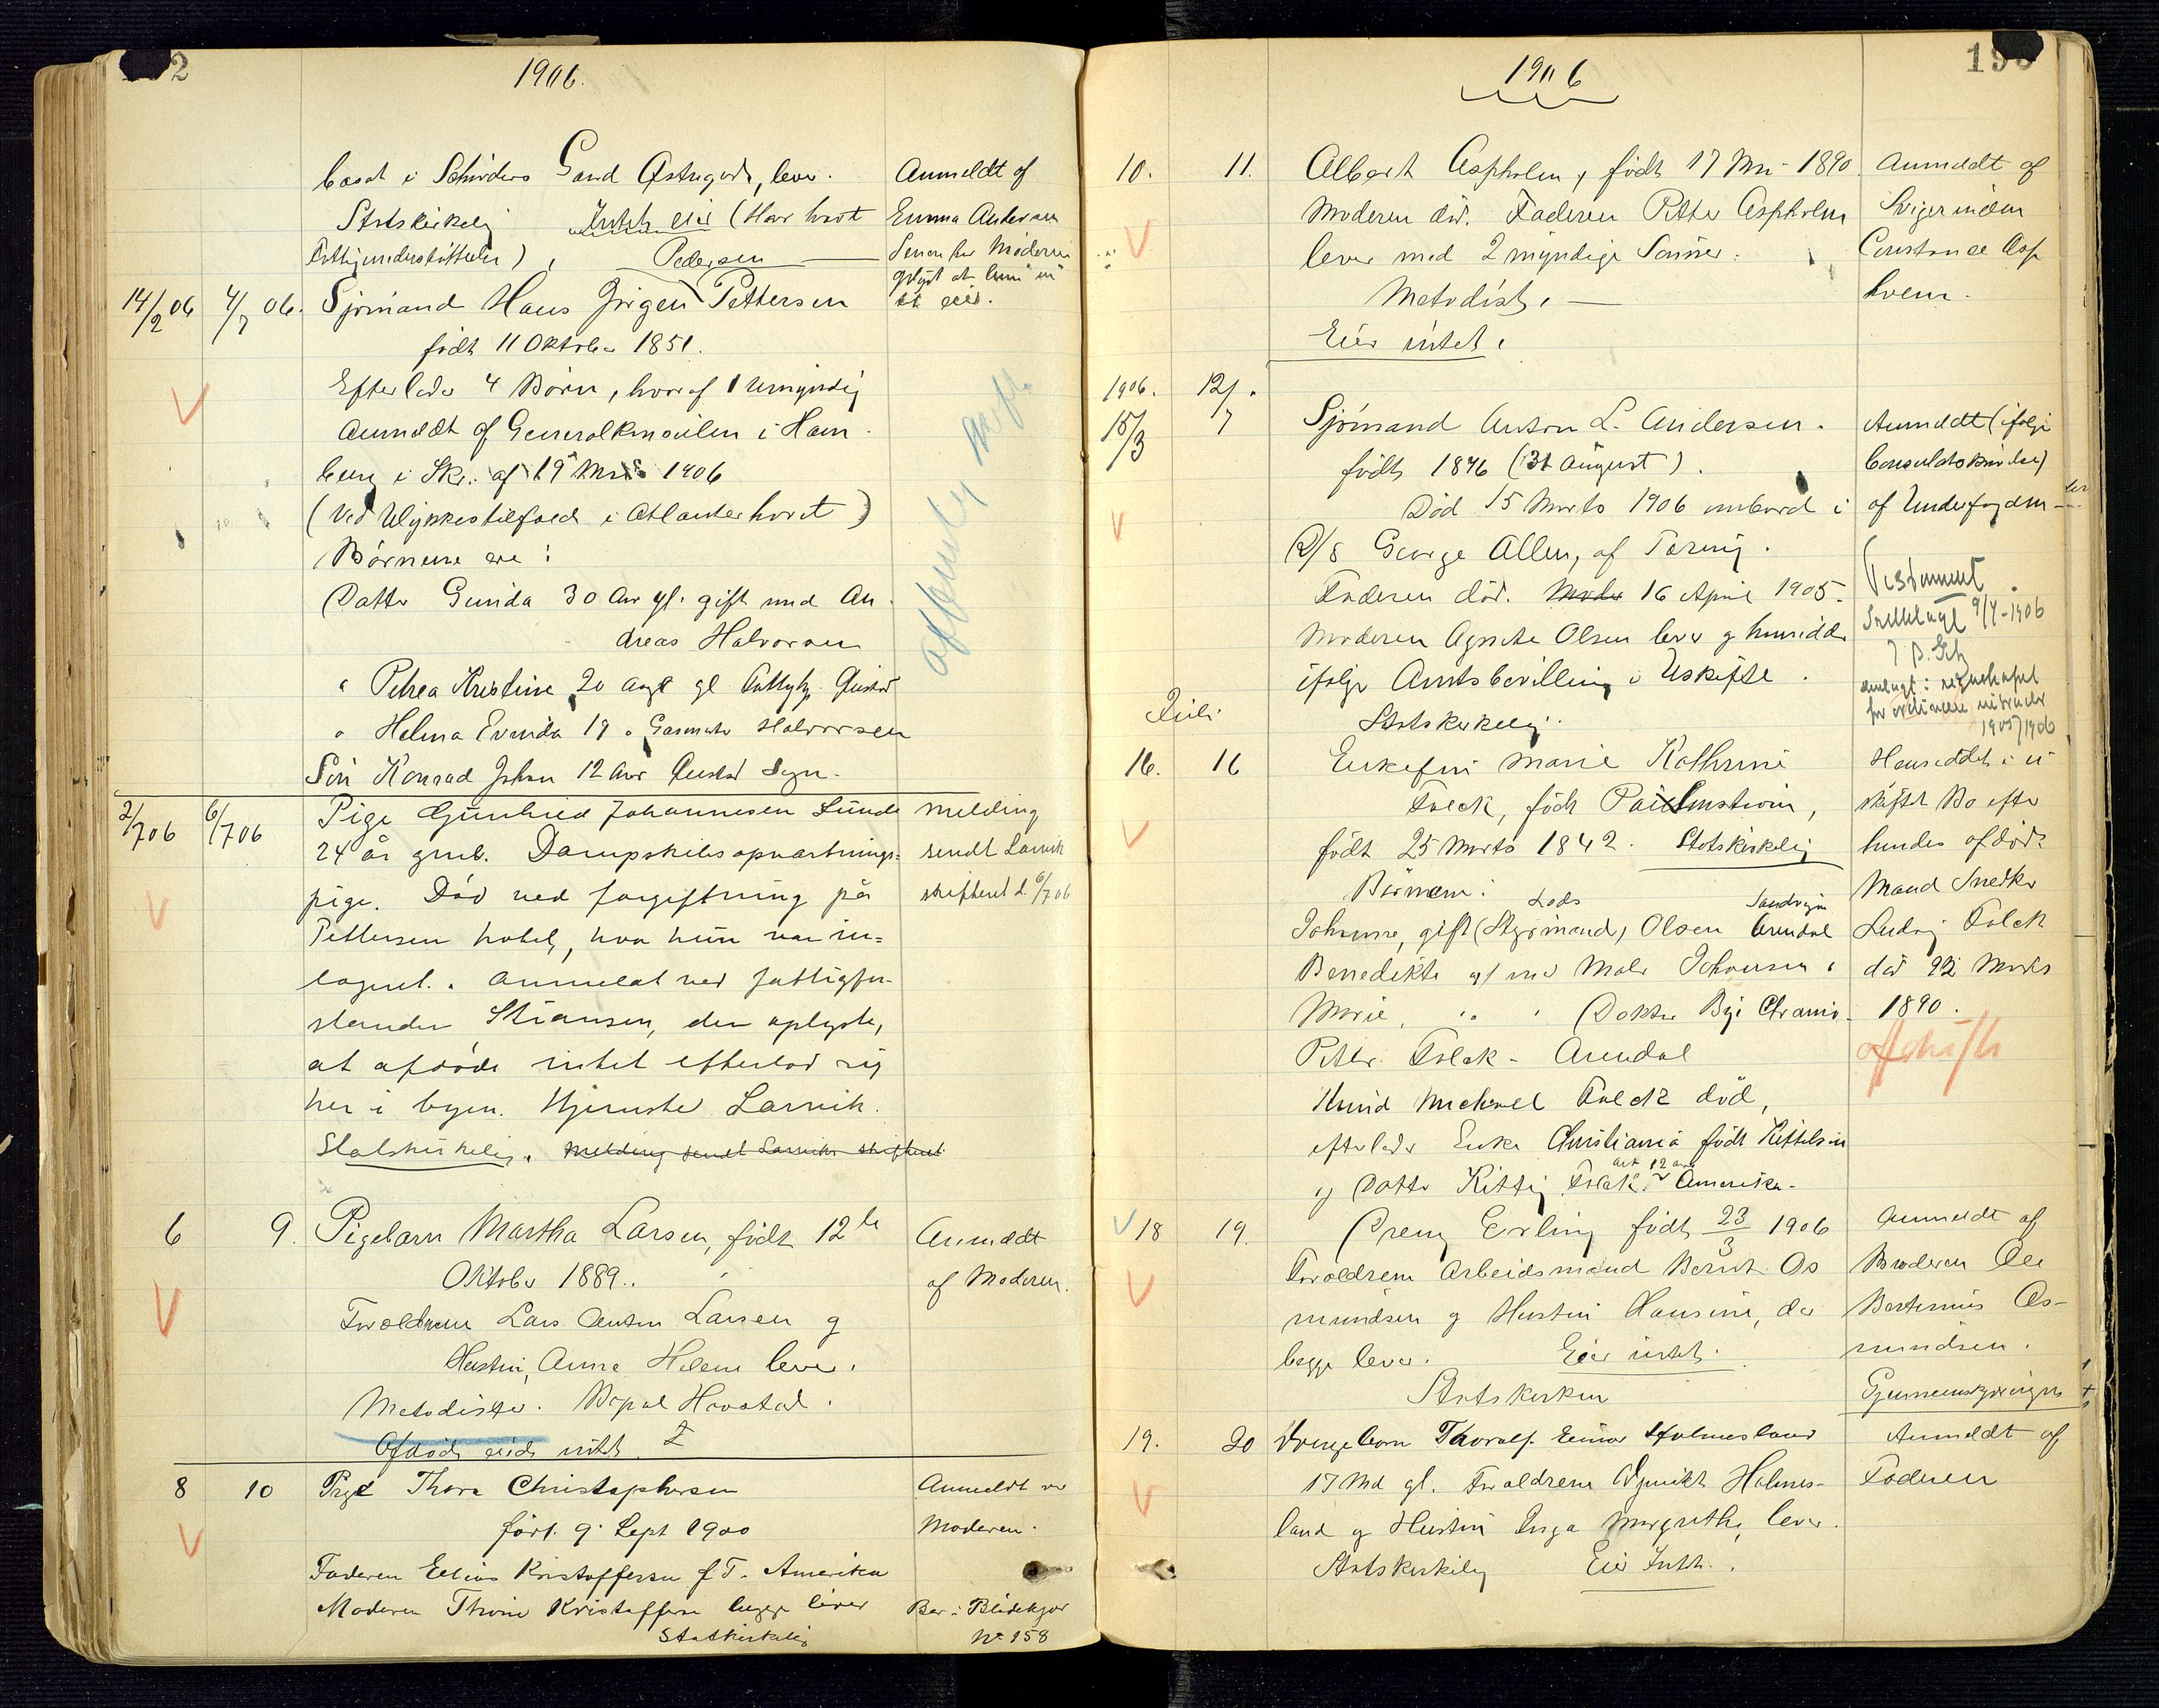 2
1906.
bosat i Schröders Gaard Østregade, lever.
Statskirkelig Intet eier (Har havt
Fattigunderstøttelse)
Anmeldt af
Emma Andersen
Senere har Moderen
oplyst at hun in
tet eier.
14/2 06 4/7 06.
Pedersen
Sjömand Hans Jörgen Pettersen
födt 11 Oktober 1851.
Efterlader 4 Børn, hvoraf 1 umyndig
Anmeldt af Generalkonsulen i Ham-
burg i Skr. af 19 Mai 1906
(Ved Ulykkestilfælde i Atlanterhavet)
Börnene ere:
Datter Gunda 30 Aar gl. gift med An-
dreas Halvorsen
" Petrea Kristine 20 Aar gl
" Helma Evinda 19 " Halvorsen
Søn Konrad Johan 12 Aar
2/7 06 6/7 06
Pige Gunhild Johannesen Lunde
24 år gml. Dampskibsopvartnings-
pige. Död ved forgiftning på
Pettersens hotel, hvor hun var in-
logeret. Anmeldt ved fattigfor-
stander Stiansen, der oplyste,
at afdöde intet efterlod sig
her i byen. Hjemsted Larvik.
Statskirkelig. Melding sendt Larviks skifteret
melding
sendt Larvik
skifteret d. 6/7 06
6 9.
Pigebarn Martha Larsen, födt 12te
Oktober 1889.
Forældrene Lars Anton Larsen og
Hustru, Anna Helene lever.
Metodister. Bopæl Havstad.
Afdöde eiede intet.
Anmeldt
af Moderen.
8 10
Pige Thora Christophersen
født. 9. Sept 1900
Faderen Elias Kristoffersen f. T. Amerika
Moderen Thrine Kristoffersen begge lever
Statskirkelig
Anmeldt av
Moderen.
Bor i Blödekjær
No 158
1906
10. 11.
Albert Aspholm, födt 17 Mai 1890.
Moderen död. Faderen Petter Aspholm
lever med 2 myndige Sönner.
Metodist.
Eier intet.
Anmeldt af
Svigerinden
Constance Asp
holm.
1906.
15/3 12/7
Sjömand Anton L. Andersen.
födt 1876 (31 August).
Død 15 Marts 1906 ombord i
D/S George Allen, af
Faderen död. 16 April 1905.
Moderen Agnethe Olsen lever og hensidder
ifølge Amtsbevilling i Uskifte.
Statskirkelig.
Anmeldt (ifølge
Consulatsskrivelse)
af Underfogden
Testament
fremlagt 9/7-1906
1905/1906
Juli
16. 16
Enkefru Marie Kathrine
Falck, födt
født 25 Marts 1842. Statskirkelig
Børnene:
Lods Sandvigen
Johanne, gift (Styrmand) Olsen Arendal
Benedikte gf med Maler Johansen
Marie, " " Doktor Christiania
Petter Falck - Arendal
Knud Michael Falck död,
efterlader Enke Christiania født Kittelsen
og Datter Kitty Falck 12 aar Amerika.
Hensiddet i u
skiftet Bo efter
hendes afdöde
Mand Snedker
Ludvig Falck
død 22 Marts
1890.
18 19.
Dreng Erling födt 23/3 1906
Forældrene Arbeidsmand Bernt As
mundsen og Hustru Hansine, der
begge lever. Eier intet.
Statskirken
Anmeldt af
Broderen Ole
As-
mundsen.
19. 20
Drengebarn Thoralf Einar Holmesland
17 Md gl. Forældrene Holmes-
land og Hustru Inga Margrethe, lever.
Statskirkelig Eier Intet.
Anmeldt af
Faderen